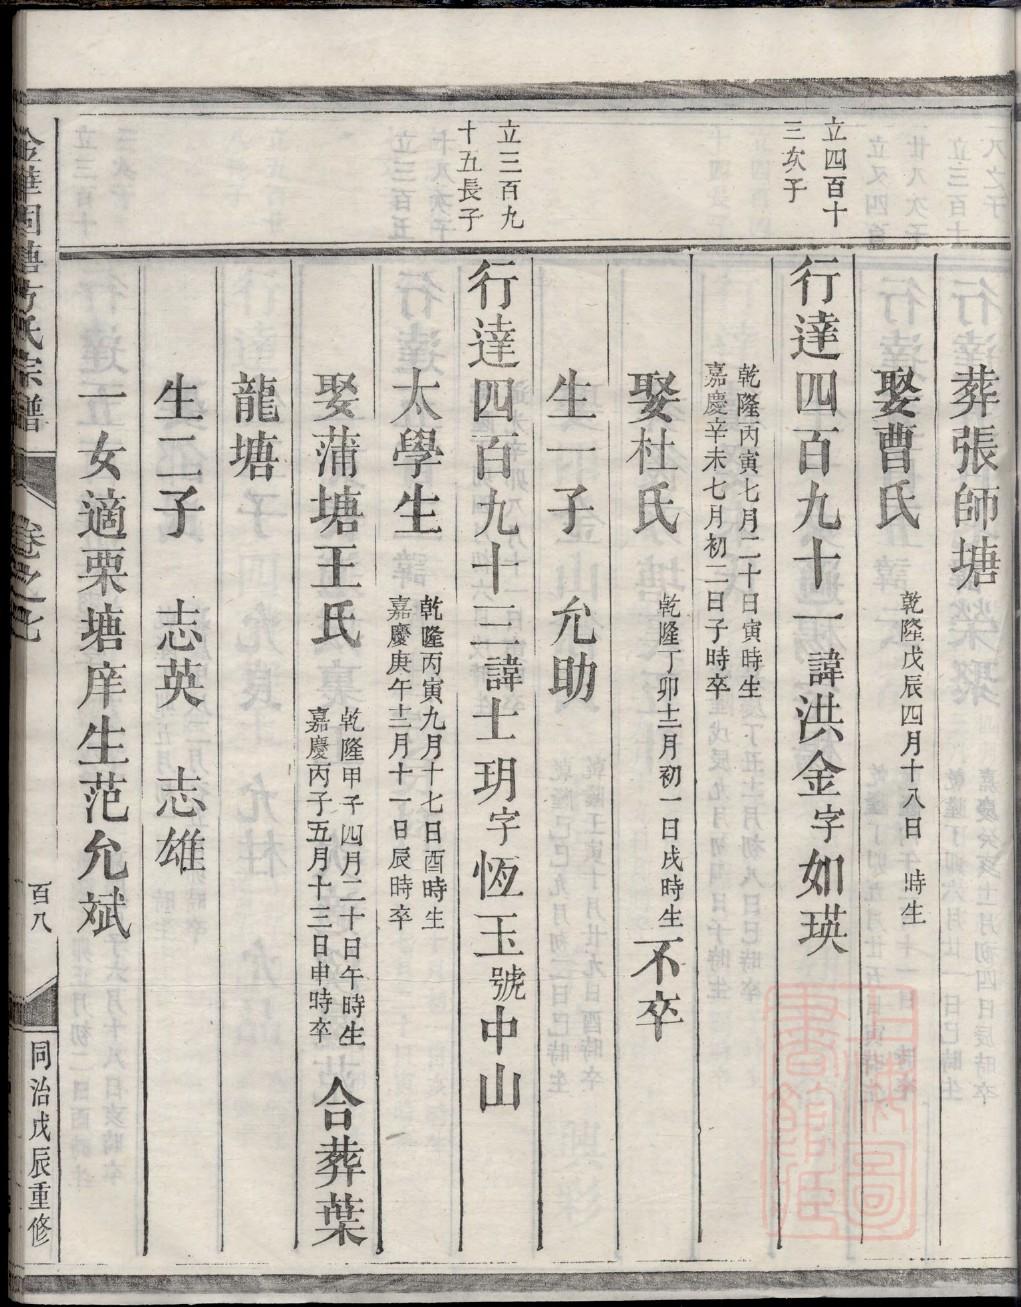 葬張師塘
娶曹氏 乾隆戊辰四月十八日 時生
立四百十
三次子
行達四百九十一諱洪金字如瑛
乾隆丙寅七月二十日寅時生
嘉慶辛未七月初二日子時卒
娶杜氏 乾隆丁卯十二月初一日戌時生 不卒
生一子 允助
立三百九
十五長子
行達四百九十三諱士玥字恆玉號中山
太學生 乾隆丙寅九月十七日酉時生
嘉慶庚午十二月十一日辰時卒
娶蒲塘王氏 乾隆甲子四月二十日午時生
嘉慶丙子五月十三日申時卒 合葬葉
龍塘
生二子 志英 志雄
一女適栗塘庠生范允斌
卷之七
百八
同治戊辰重修